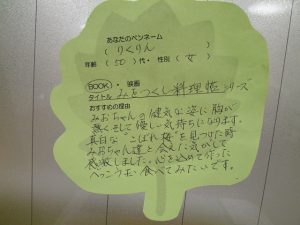 あなたのペンネーム
( りくりん )
年齢 ( 50 ) 代・ 性別 ( 女 )
BOOK ・ 映画
タイトル みをつくし料理帖シリーズ
おすすめの理由
みおちゃんの健気な姿に胸が
熱くそして優しい気持ちになります。
真白な "こぼれ梅" を見つけた時
みおちゃん達と会えた気がして
感激しました。心を込めて作った
べっこう玉い食べてみたいです。